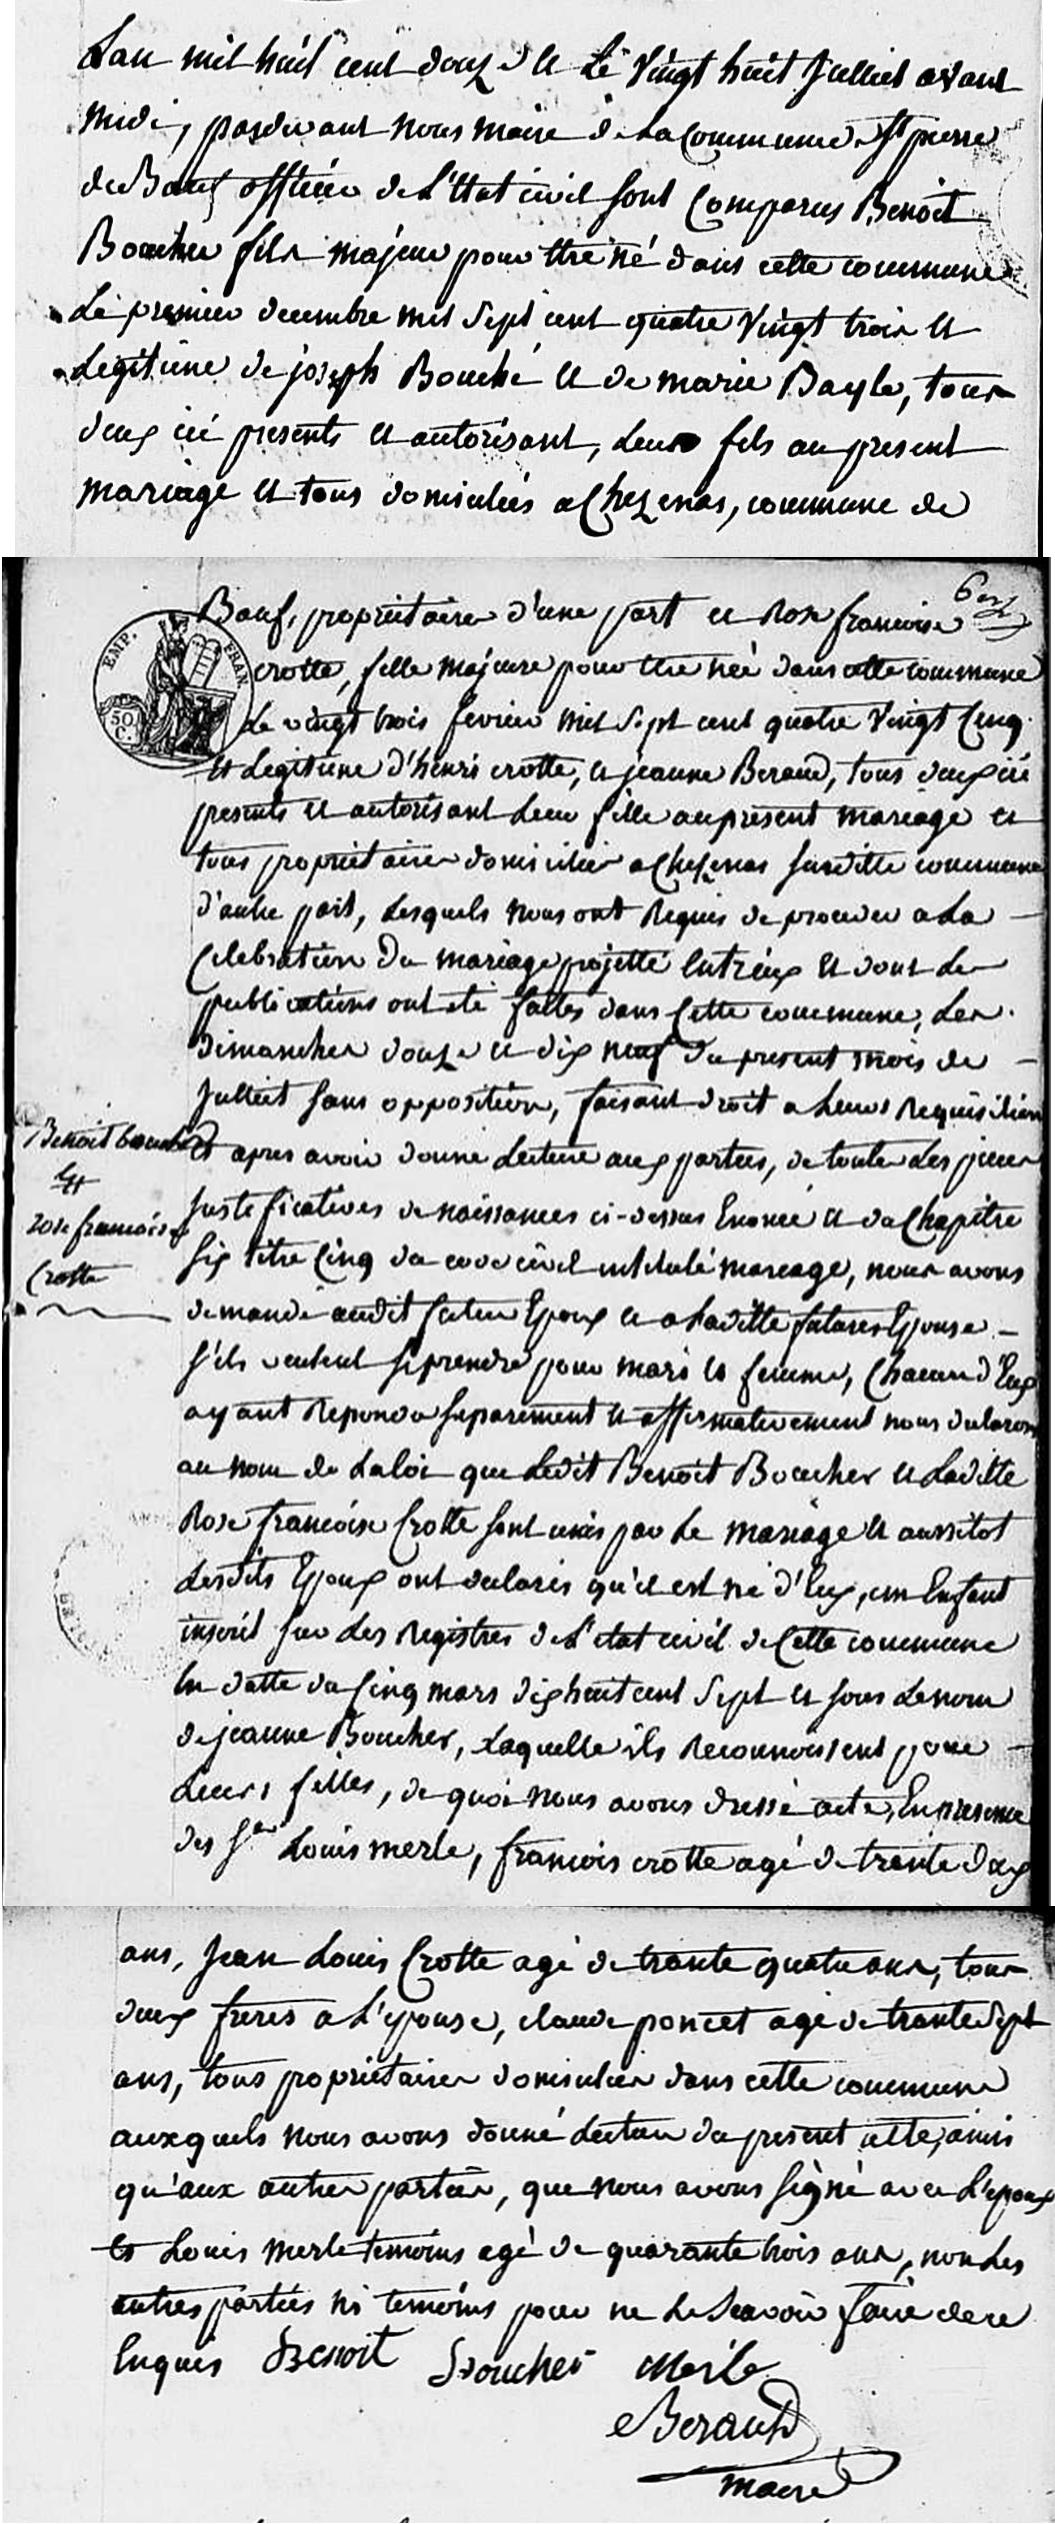 Lan mil huit cent douze et Le vingt huit Juilliet avant
midi, pardevant nous maire de La Commune St pierre
de Bœuf officier de L'Etat civil sont Comparus Benoit
Boucher fils majeur pour être né dans cette commune
Le premier decembre mil Sept cent quatre vingt trois et
Legitime de joseph Bouché et de marie Bayle, tous
deux ici presents et autorisant, Leur fils au present
mariage et tous domiciliés a Chezenas, commune de
EMP. FRAN.
50 C.
Bœuf, propriétaires d'une part et Rose francoise
crotte, fille majeure pour être neé dans cette commune
Le vingt trois fevrier mil Sept cent quatre vingt Cinq
et Legitime d'henri crotte, et jeanne Beraud, tous deux ici
presents et autorisant Leur fille au present mariage et
tous propriétaires domiciliés a Chezenas susditte commune
d'autre part, Lesquels nous ont Requis de proceder a La
Celebration Du mariage projetté Entr'eux et dont Les
publications ont eté faites dans Cette commune, Les
Dimanches douze et dix neuf du present mois de
Julliet sans opposition, faisant droit a Leurs Requisition
Et apres avoir donné Lecture aux parties, de toutes Les pieces
Justificatives de naissances ci-dessus Enoncé et du Chapitre
six titre Cinq du code civil intitulé mariage, nous avons
demandé audit futur Epoux et a Laditte future Epouse
s'ils veulent se prendre pour mari et femme, Chacun d'Eux
ayant Repondu separement et affirmativement nous declarons
au nom de La loi que Ledit Benoit Boucher et Laditte
Rose francoise Crotte sont unis par Le mariage et aussitot
Lesdits Epoux ont declarés qu'il est né d'Eux, un Enfant
inscrit sur Les Registres de L'etat civil de Cette commune
En datte du Cinq mars dix huit cent Sept et sous Le nom
de jeanne Boucher, Laquelle ils Reconnoissent pour
Leurs filles, de quoi nous avons dressé acte, En presence
des Srs Louis merle, francois crotte agé de trente deux
Benoit boucher
Et
rose francoise
Crotte
ans, Jean Louis Crotte agé de trante quatre ans, tous
deux freres a L'epouse, claude poncet agé de trante Sept
ans, tous propriétaires domiciliés dans cette commune
auxquels nous avons donné Lecture du present acte, ainsi
qu'aux autres parties, que nous avons signé avec L'epoux
et Louis merle temoins agé de quarante trois ans, non Les
autres parties ni temoins pour ne Le Scavoir faire de ce
Enquis Benoit Boucher Merle
Beraud
maire